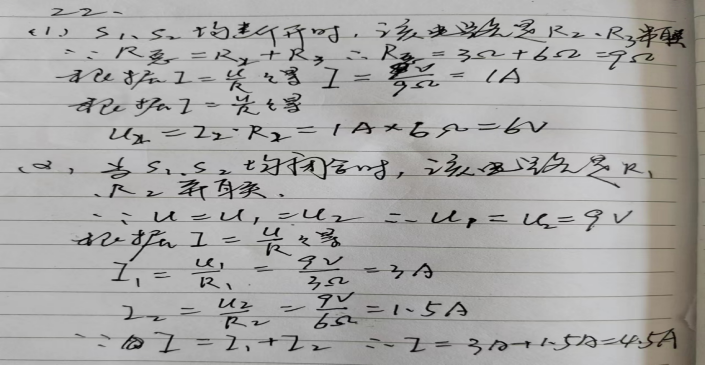 22.
(1) S₁、S₂均断开时，该电路是R₂、R₃串联
∵R总=R₂+R₃ ∴R总=3Ω+6Ω=9Ω
根据I=U/R得 I=9V/9Ω=1A
根据I=U/R得
U₂=I₂·R₂=1A×6Ω=6V
(2)，当S₁、S₂均闭合时，该电路是R₁
、R₂并联.
∵U=U₁=U₂ ∴U₁=U₂=9V
根据I=U/R得
I₁=U₁/R₁=9V/3Ω=3A
I₂=U₂/R₂=9V/6Ω=1.5A
∵I=I₁+I₂ ∴I=3A+1.5A=4.5A